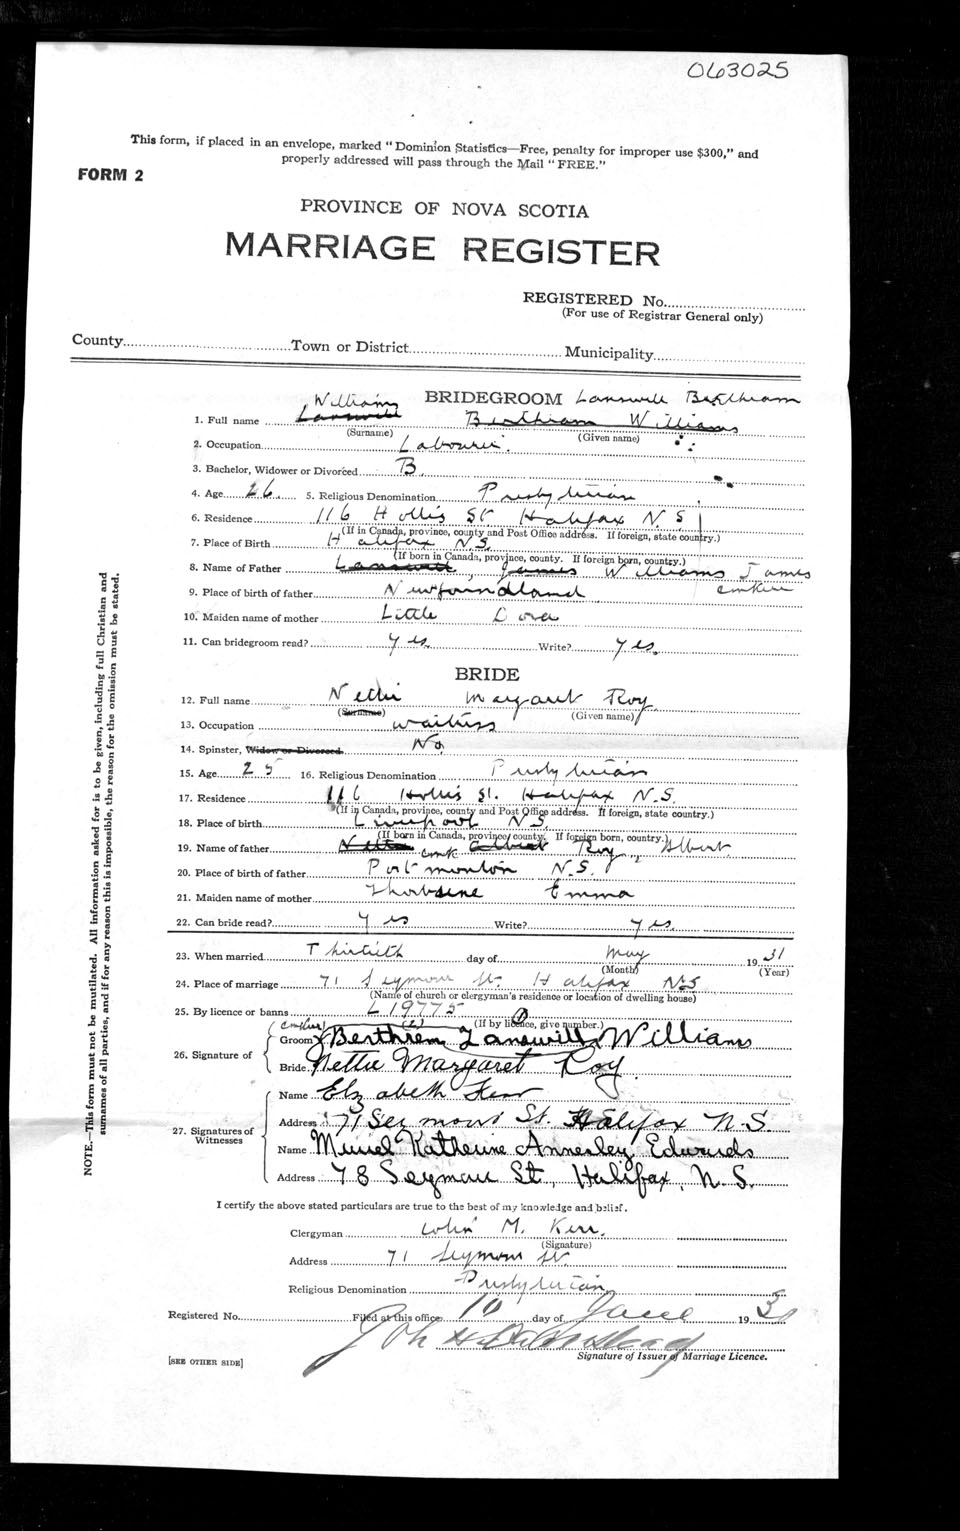 063025
This form, if placed in an envelope, marked "Dominion Statistics—Free, penalty for improper use $300," and
properly addressed will pass through the Mail "FREE."
FORM 2
PROVINCE OF NOVA SCOTIA
MARRIAGE REGISTER
REGISTERED No.
(For use of Registrar General only)
County Town or District Municipality
BRIDEGROOM Lanswill Bertham
Williams
1. Full name Lanswill Bertham Williams
(Surname) (Given name)
2. Occupation Labourer.
3. Bachelor, Widower or Divorced B
4. Age 26 5. Religious Denomination Presbyterian
6. Residence 116 Hollis St Halifax N.S
(If in Canada, province, county and Post Office address. If foreign, state country.)
7. Place of Birth Halifax N.S.
(If born in Canada, province, county. If foreign born, country.)
8. Name of Father Lanswill, James Williams James
9. Place of birth of father Newfoundland
10. Maiden name of mother Little Dora
11. Can bridegroom read? Yes. Write? Yes.
BRIDE
12. Full name Nettie Margaret Roy
(Surname) (Given name)
13. Occupation waitress
14. Spinster, Widow or Divorced No
15. Age 25 16. Religious Denomination Presbyterian
17. Residence 116 Hollis St. Halifax N.S.
(If in Canada, province, county and Post Office address. If foreign, state country.)
18. Place of birth Liverpool N.S.
(If born in Canada, province, county. If foreign born, country.)
19. Name of father Roy, Albert
20. Place of birth of father Port mouton N.S.
21. Maiden name of mother Emma
22. Can bride read? Yes Write? yes.
23. When married Thirtieth day of May 1931
(Month) (Year)
24. Place of marriage 71 Seymour St. Halifax N.S
(Name of church or clergyman's residence or location of dwelling house)
25. By licence or banns L 19775
(If by licence, give number.)
26. Signature of
Groom Berthrem Lanswill Williams
Bride Nettie Margaret Roy
27. Signatures of Witnesses
Name Elizabeth Kerr
Address 71 Seymour St. Halifax N.S
Name Muriel Katherine Annesley Edwards
Address 78 Seymour St., Halifax, N.S.
I certify the above stated particulars are true to the best of my knowledge and belief.
Clergyman Colin M. Kerr.
(Signature)
Address 71 Seymour St.
Religious Denomination Presbyterian
Registered No. Filed at this office 10 day of June 1931
Signature of Issuer of Marriage Licence.
[SEE OTHER SIDE]
NOTE.—This form must not be mutilated. All information asked for is to be given, including full Christian and
surnames of all parties, and if for any reason this is impossible, the reason for the omission must be stated.